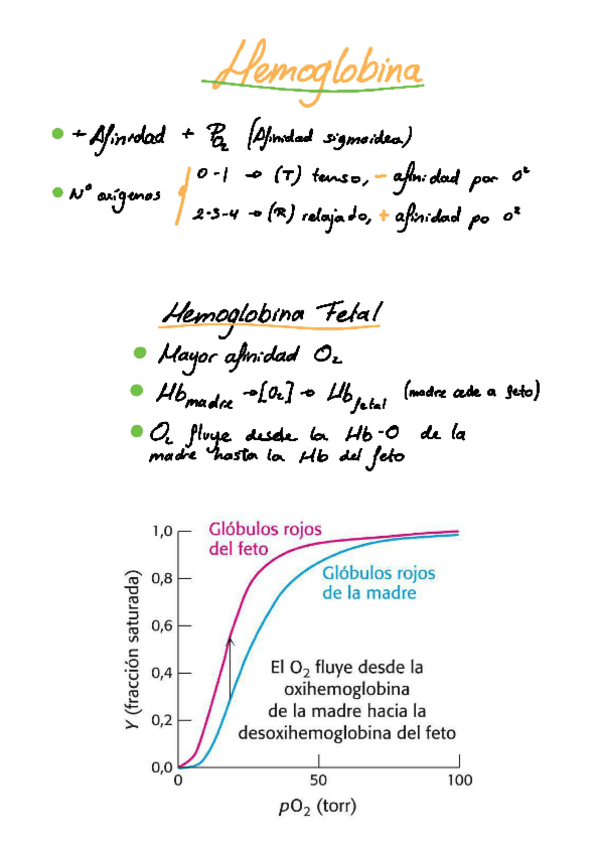 Hemoglobina
+ Afinidad + PO₂ (Afinidad sigmoidea)
Nº oxígenos
0-1 → (T) tenso, - afinidad por O²
2-3-4 → (R) relajado, + afinidad po O²
Hemoglobina Fetal
Mayor afinidad O₂
Hb madre → [O₂] → Hb fetal (madre cede a feto)
O₂ fluye desde la Hb-O de la
madre hasta la Hb del feto
Glóbulos rojos
del feto
Glóbulos rojos
de la madre
El O₂ fluye desde la
oxihemoglobina
de la madre hacia la
desoxihemoglobina del feto
Y (fracción saturada)
1,0
0,8
0,6
0,4
0,2
0,0
0 50 100
pO₂ (torr)